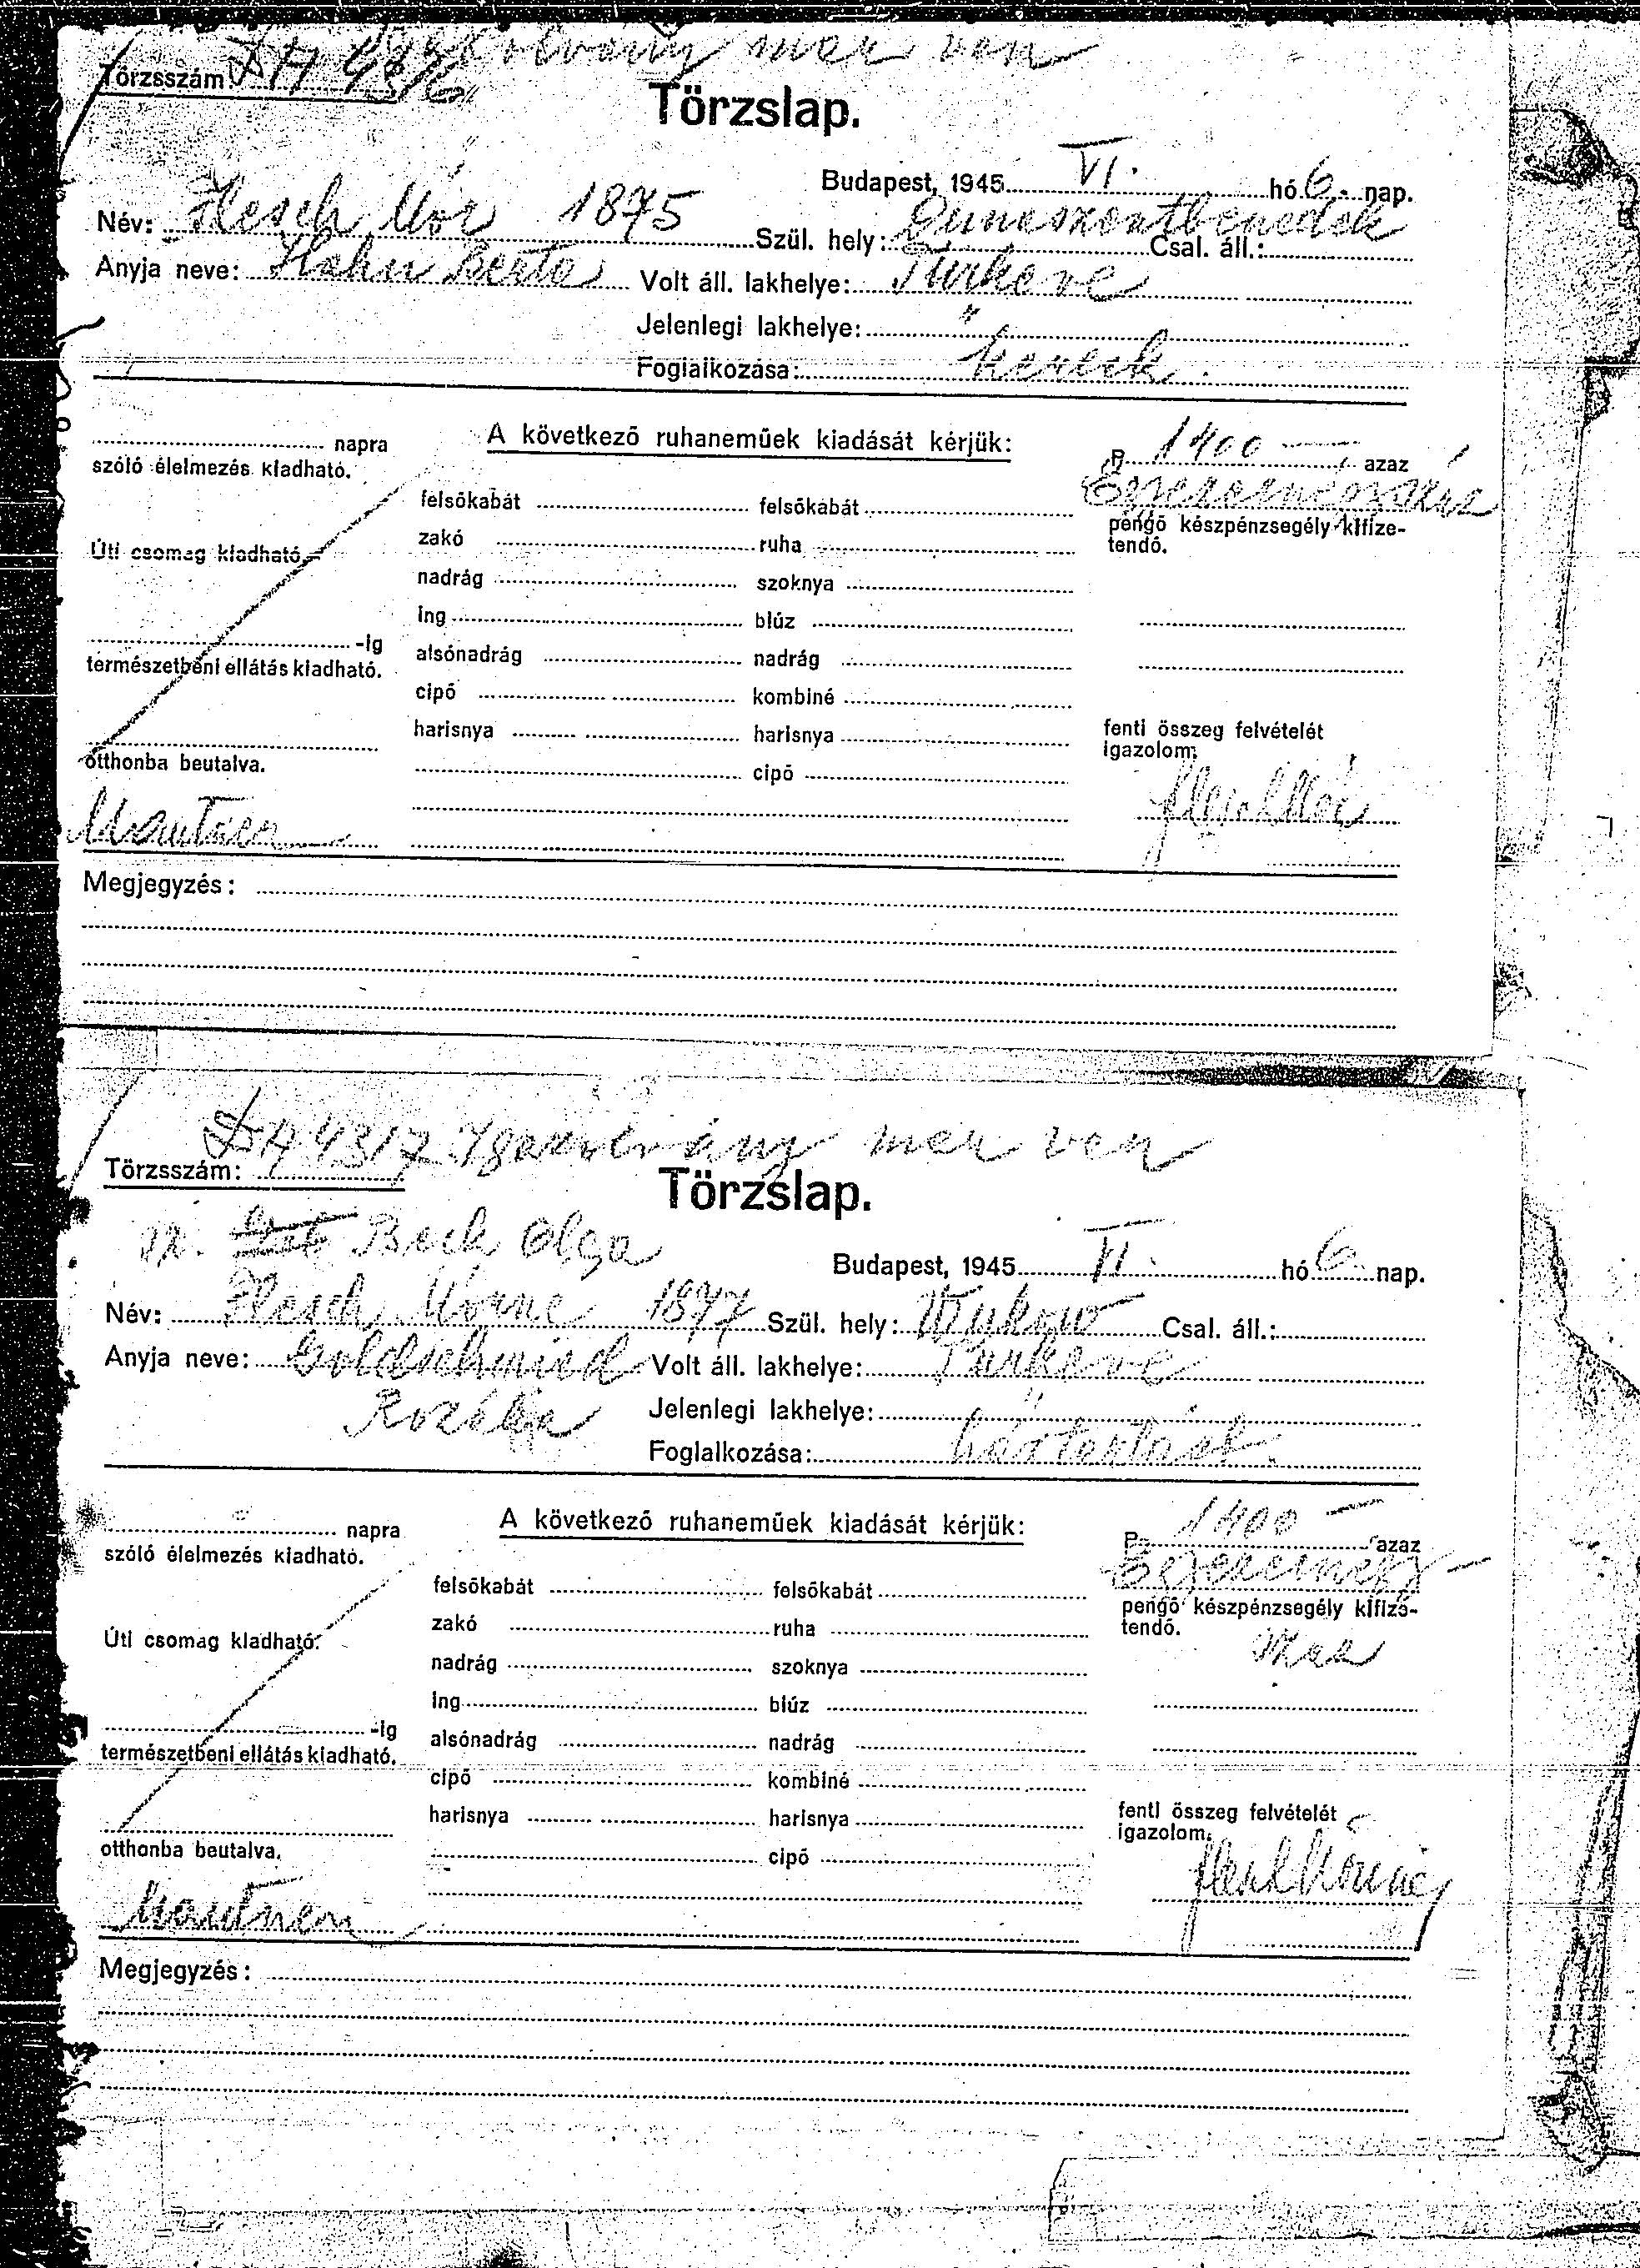 Törzsszám: DA 4316 már van
Törzslap.
Budapest, 1945 VI. hó 6. nap.
Név: Flesch Mór 1875 Szül. hely: Dunaszentbenedek Csal. áll.:
Anyja neve: Hahn Berta Volt áll. lakhelye: Túrkeve
Jelenlegi lakhelye: "
Foglalkozása: keresk.
napra
szóló élelmezés kiadható.
Úti csomag kiadható.
-ig
természetbeni ellátás kiadható.
otthonba beutalva.
A következő ruhaneműek kiadását kérjük:
felsőkabát felsőkabát
zakó ruha
nadrág szoknya
ing blúz
alsónadrág nadrág
cipő kombiné
harisnya harisnya
cipő
P 1400 — azaz
Egyezernégyszáz
pengő készpénzsegély kifize-
tendő.
fenti összeg felvételét
igazolom:
Flesch Mór
Megjegyzés:
DA 4317 Igazolvány már van
Törzsszám:
Törzslap.
sz. Beck Olga
Budapest, 1945 VI. hó 6 nap.
Név: Flesch Mórné 1877 Szül. hely: Csal. áll.:
Anyja neve: Goldschmied Volt áll. lakhelye: Túrkeve
Rozália Jelenlegi lakhelye: "
Foglalkozása: háztartásb.
napra
szóló élelmezés kiadható.
Úti csomag kiadható.
-ig
természetbeni ellátás kiadható.
otthonba beutalva.
A következő ruhaneműek kiadását kérjük:
felsőkabát felsőkabát
zakó ruha
nadrág szoknya
ing blúz
alsónadrág nadrág
cipő kombiné
harisnya harisnya
cipő
P 1400 — azaz
Egyezernégy-
pengő készpénzsegély kifize-
tendő.
száz
fenti összeg felvételét
igazolom.
Flesch Mórné
Megjegyzés: